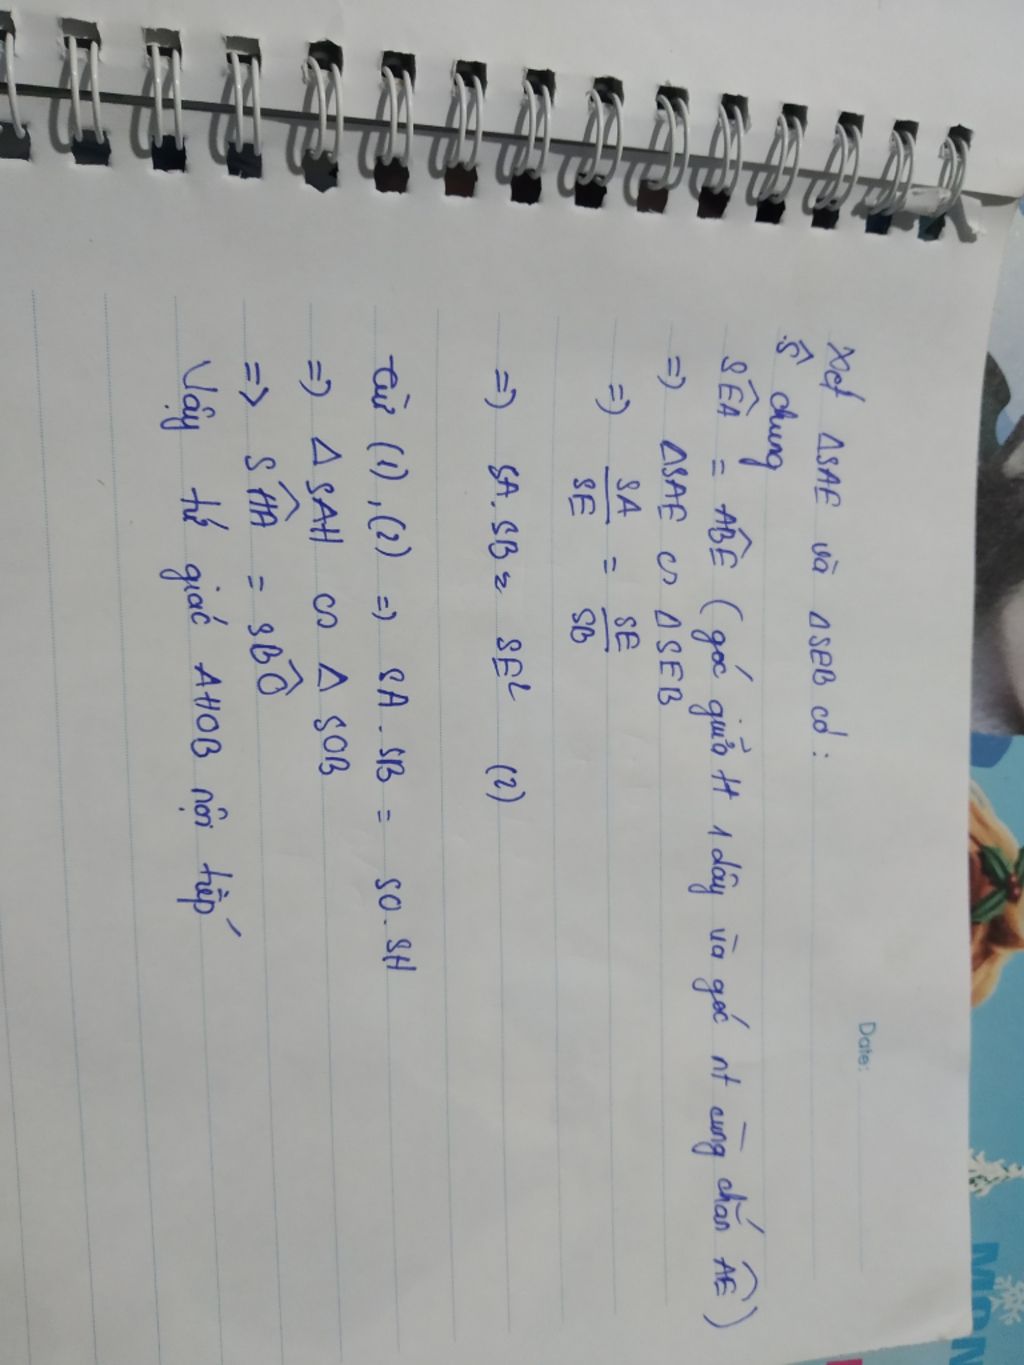 Date:
Xét ΔSAE và ΔSEB có:
Ŝ chung
SÊA = AB̂E (góc giữa tt 1 dây và góc nt cùng chắn AE⌢)
=> ΔSAE ∽ ΔSEB
=> SA/SE = SE/SB
=> SA.SB = SE² (2)
Từ (1), (2) => SA.SB = SO.SH
=> ΔSAH ∽ ΔSOB
=> SĤA = SB̂O
Vậy tứ giác AHOB nội tiếp